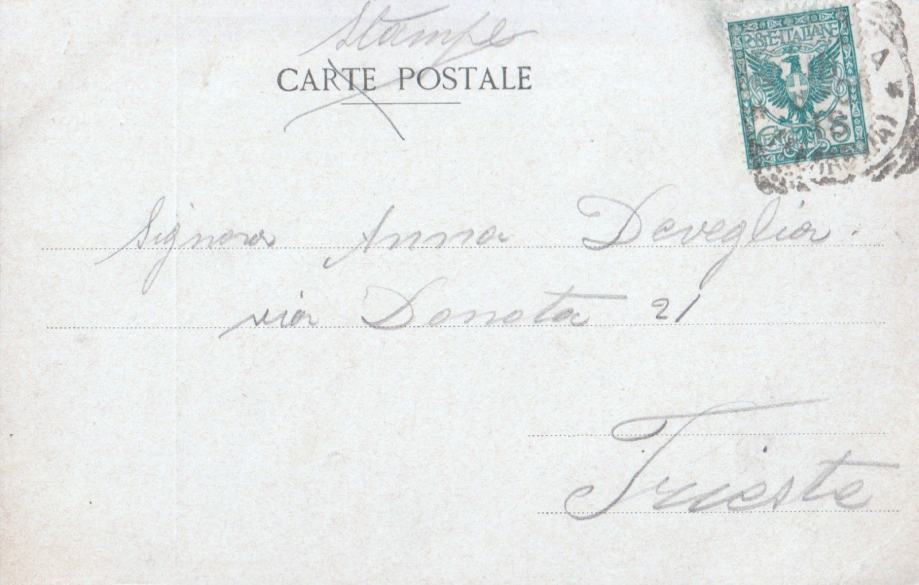 Stampe
CARTE POSTALE
POSTE ITALIANE
5
Signora Anna Deveglia.
via Donota 21
Trieste